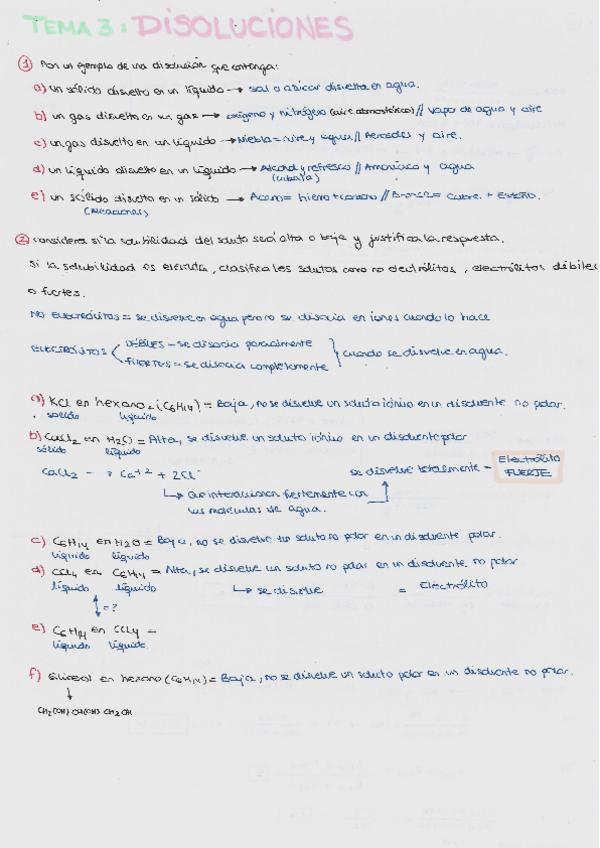 TEMA 3: DISOLUCIONES
① Pon un ejemplo de una disolución que contenga:
a) un sólido disuelto en un líquido → sal o azúcar disuelta en agua.
b) un gas disuelto en un gas → oxígeno y nitrógeno (aire atmosférico) // vapor de agua y aire
c) un gas disuelto en un líquido → Niebla = aire y agua // Aerosoles y aire.
d) un líquido disuelto en un líquido → Alcohol y refresco // Amoníaco y agua
(cubata)
e) un sólido disuelto en un sólido → Acero = hierro + carbono // Bronce = cobre + estaño.
(Aleaciones)
② Considera si la solubilidad del soluto será alta o baja y justifica la respuesta.
Si la solubilidad es elevada, clasifica los solutos como no electrólitos, electrólitos débiles
o fuertes.
NO ELECTRÓLITOS = se disuelve en agua pero no se disocia en iones cuando lo hace
ELECTRÓLITOS DÉBILES - se disocia parcialmente
FUERTES = se disocia completamente
cuando se disuelve en agua.
a) KCl en hexano (C6H14) = Baja, no se disuelve un soluto iónico en un disolvente no polar.
sólido líquido
b) CaCl2 en H2O = Alta, se disuelve un soluto iónico en un disolvente polar
sólido líquido
CaCl2 → Ca+2 + 2Cl-
se disuelve totalmente - Electrólito FUERTE
↳ Que interaccionan fuertemente con
las moléculas de agua.
c) C6H14 en H2O = Baja, no se disuelve un soluto no polar en un disolvente polar.
líquido líquido
d) CCl4 en C6H14 = Alta, se disuelve un soluto no polar en un disolvente no polar
líquido líquido ↳ se disuelve = Electrólito
↕ = ?
e) C6H14 en CCl4 =
líquido líquido
f) Glicerol en hexano (C6H14) = Baja, no se disuelve un soluto polar en un disolvente no polar.
↓
CH2(OH) CH(OH) CH2OH